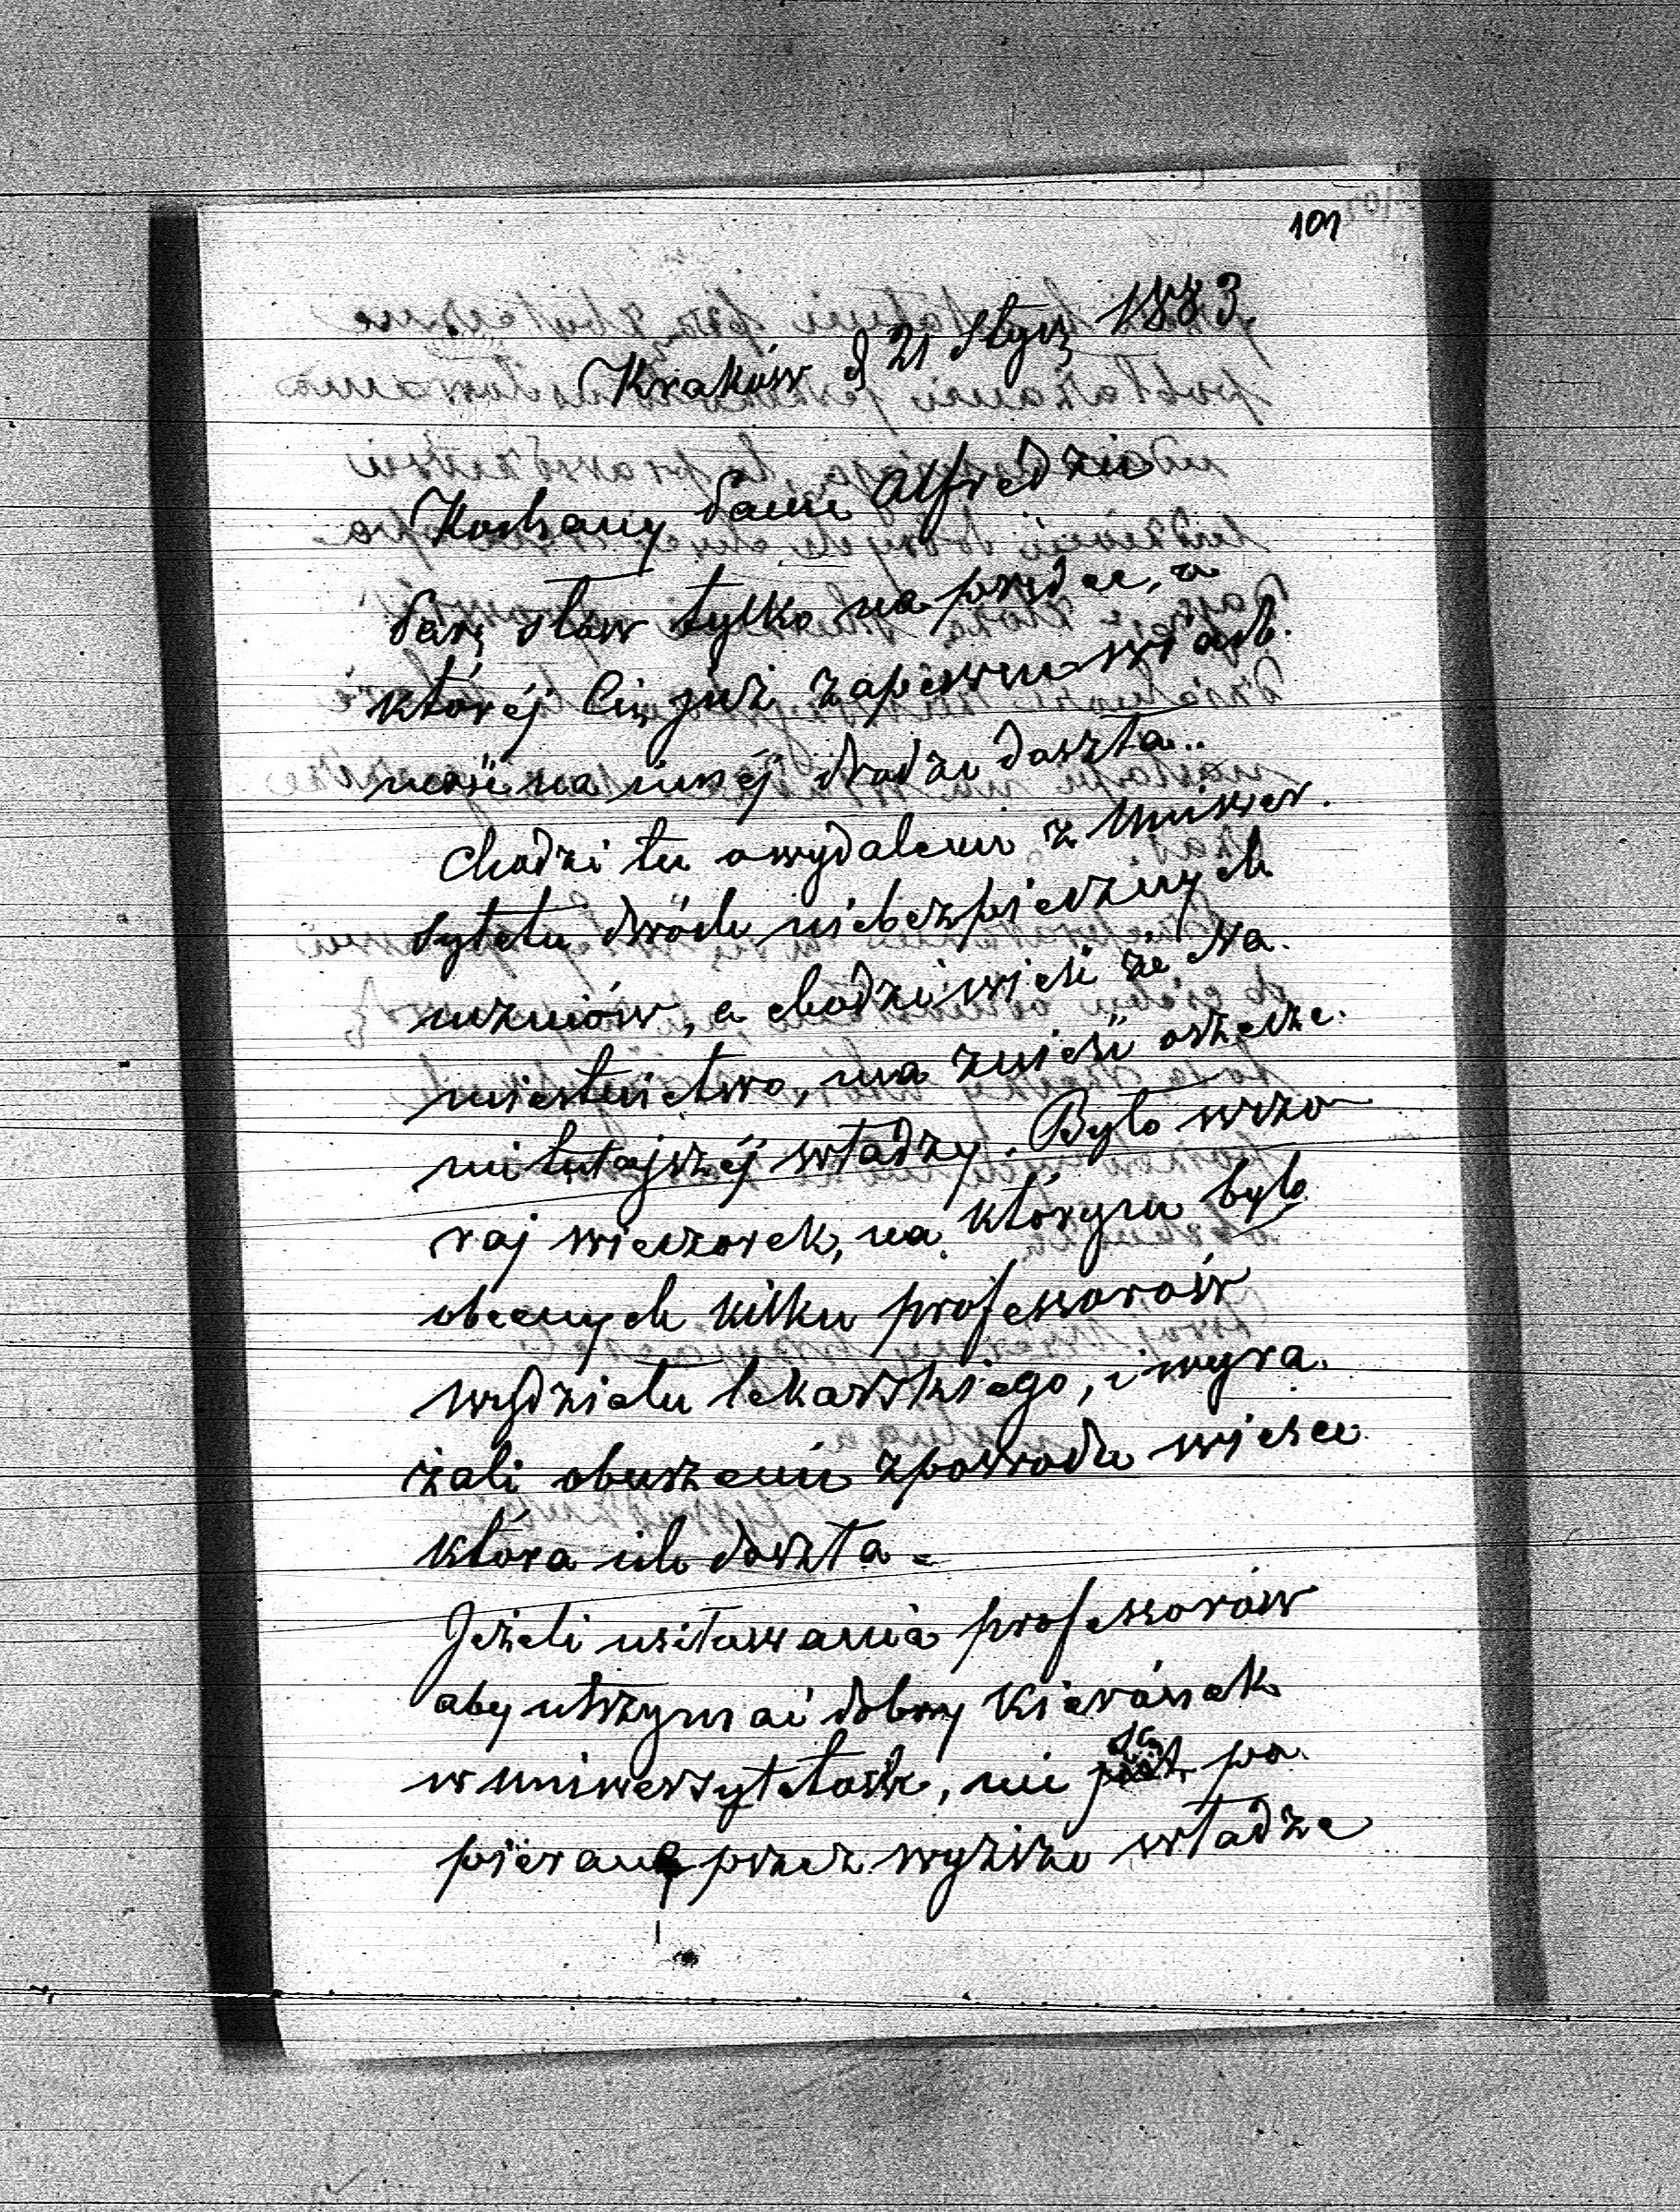 101
Kraków d 21 Stycz 1883.
Kochany Panie Alfredzie
Parę słów tylko na prędce, z
której Cię już zapewne wiado.
mość na innej drodze doszła..
Chodzi tu o wydalenie z Uniwer.
sytetu dwóch niebezpiecznych
uczniów, a chodzi wieść że Na.
miestnictwo, ma znieść orzecze.
nie tutajszéj władzy. Było wczo
raj wieczorek, na którym było
obecnych kilku professorów
wydziału lekarskiego, i wyra.
żali oburzenie zpowodu wieści
która ich doszła.
Jeżeli usiłowania professorów
aby utrzymać dobry kierónek
w uniwersytetach, nie są po
pierane przez wyższe władze